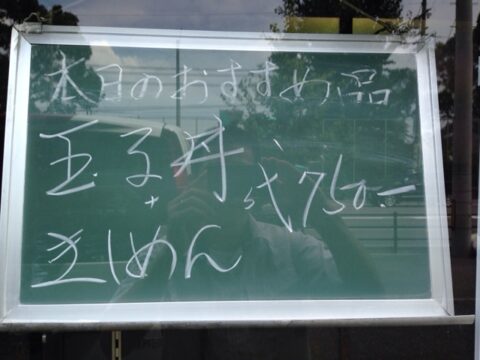 本日のおすすめ品
玉子丼
+
きしめん
750.ー